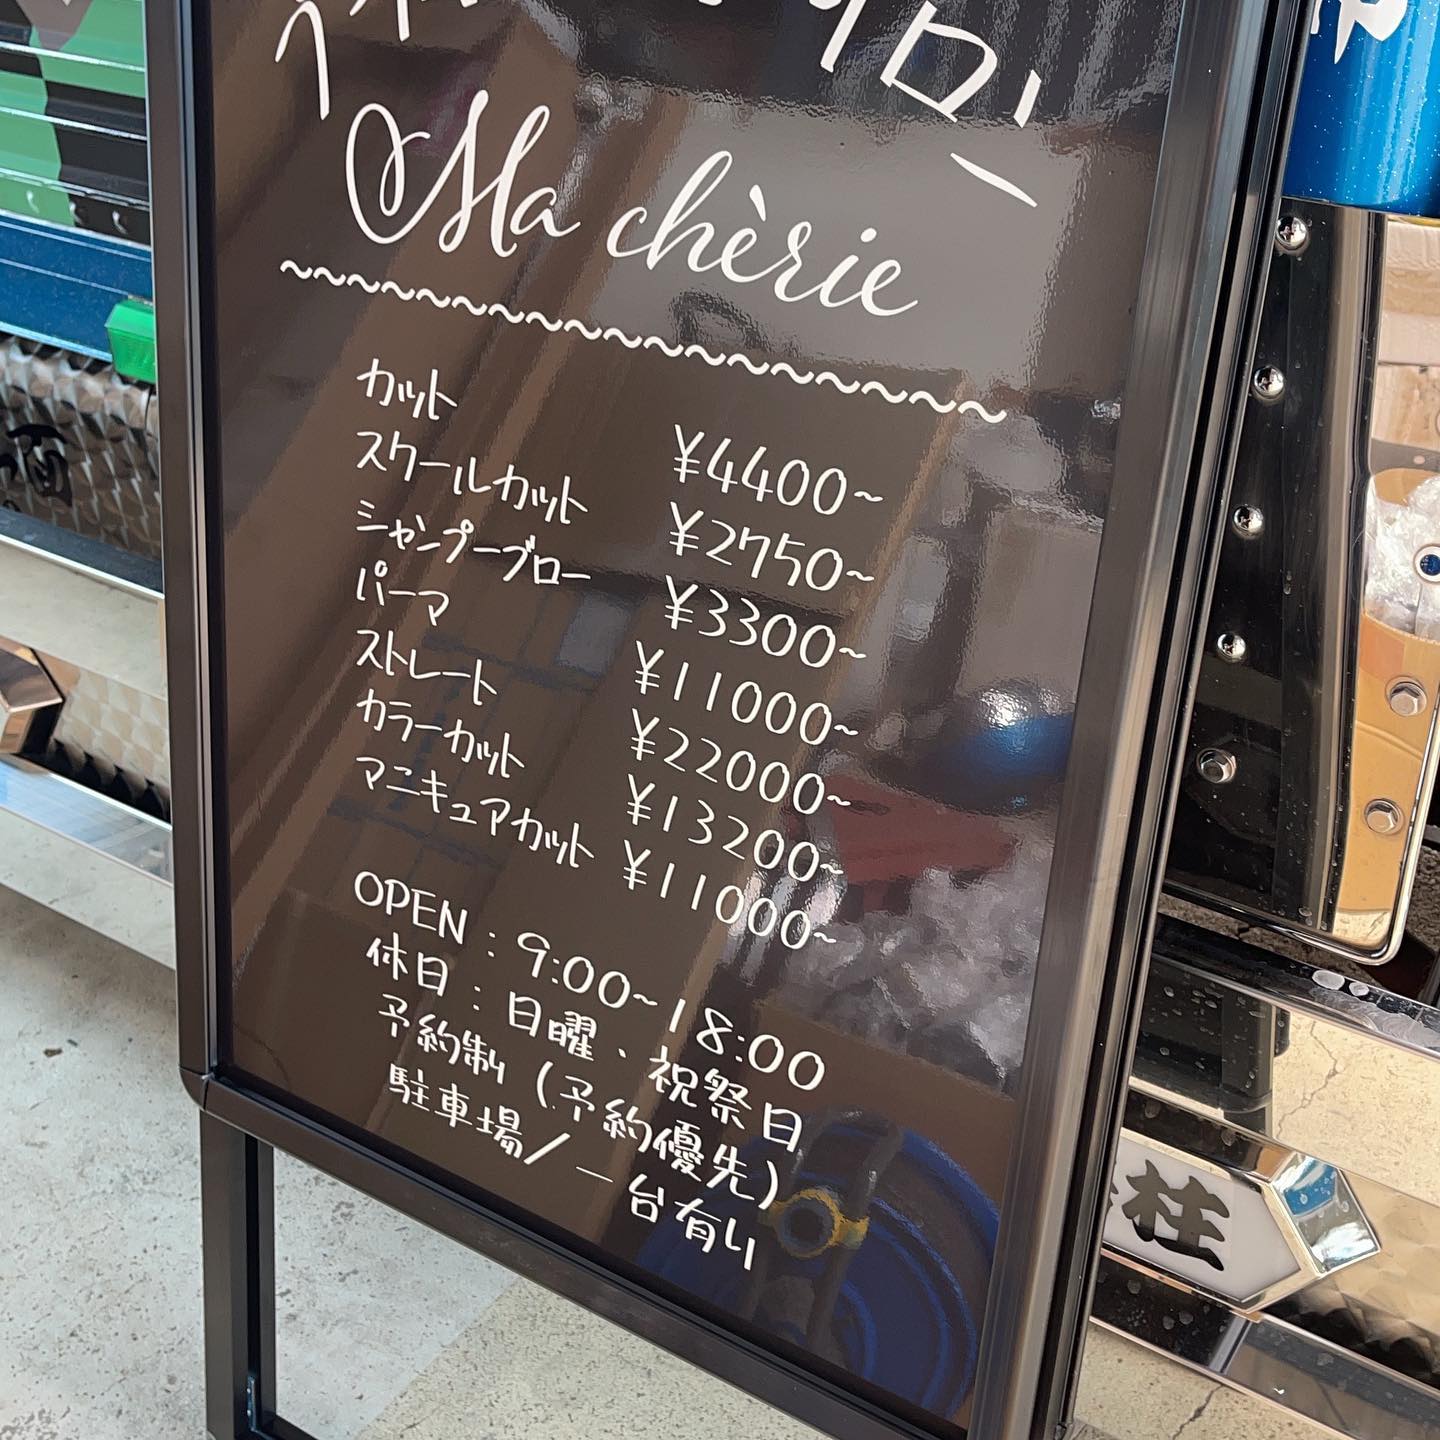 Ma chèrie
カット ¥4400~
スクールカット ¥2750~
シャンプーブロー ¥3300~
パーマ ¥11000~
ストレート ¥22000~
カラーカット ¥13200~
マニキュアカット ¥11000~
OPEN : 9:00~18:00
休日 : 日曜、祝祭日
予約制 (予約優先)
駐車場/一台有り